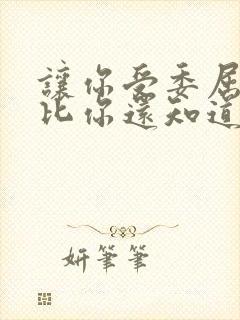 讓你受委屈
比你還知道
妍筆筆